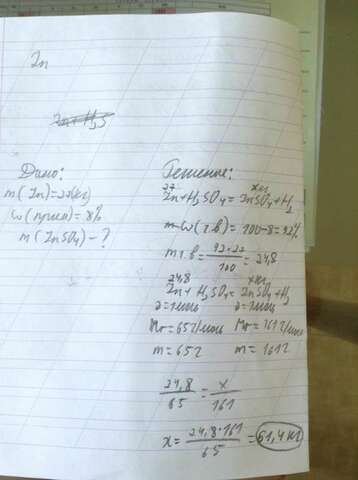 Zn
Zn+H₂S
Дано:
m(Zn)=27(кг)
ω(прим)=8%
m(ZnSO₄)-?
Решение:
27 xкг
Zn+H₂SO₄=ZnSO₄+H₂
m ω(ч.в)=100-8=92%
m ч.в=92·27/100=24,8
24,8 xкг
Zn+H₂SO₄=ZnSO₄+H₂
ν=1моль ν=1моль
Mr=65г/моль Mr=161г/моль
m=65г m=161г
24,8/65=x/161
x=24,8·161/65=61,4кг